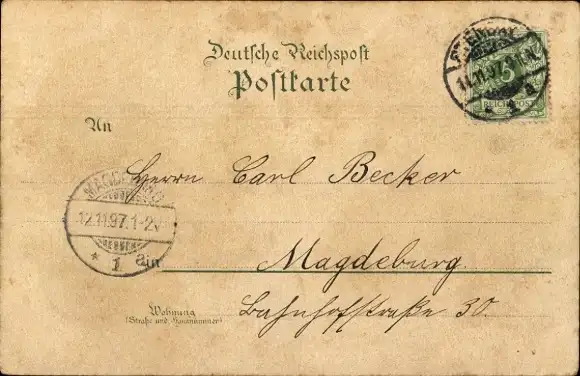 Deutsche Reichspost
Postkarte
STENDAL
11.11.97.
1 a
5
REICHSPOST
An
Herrn Carl Becker
MAGDEBURG
12.11.97.1-2 V
* 1
in
Magdeburg.
Wohnung
(Straße und Hausnummer)
Bahnhofstraße 30.